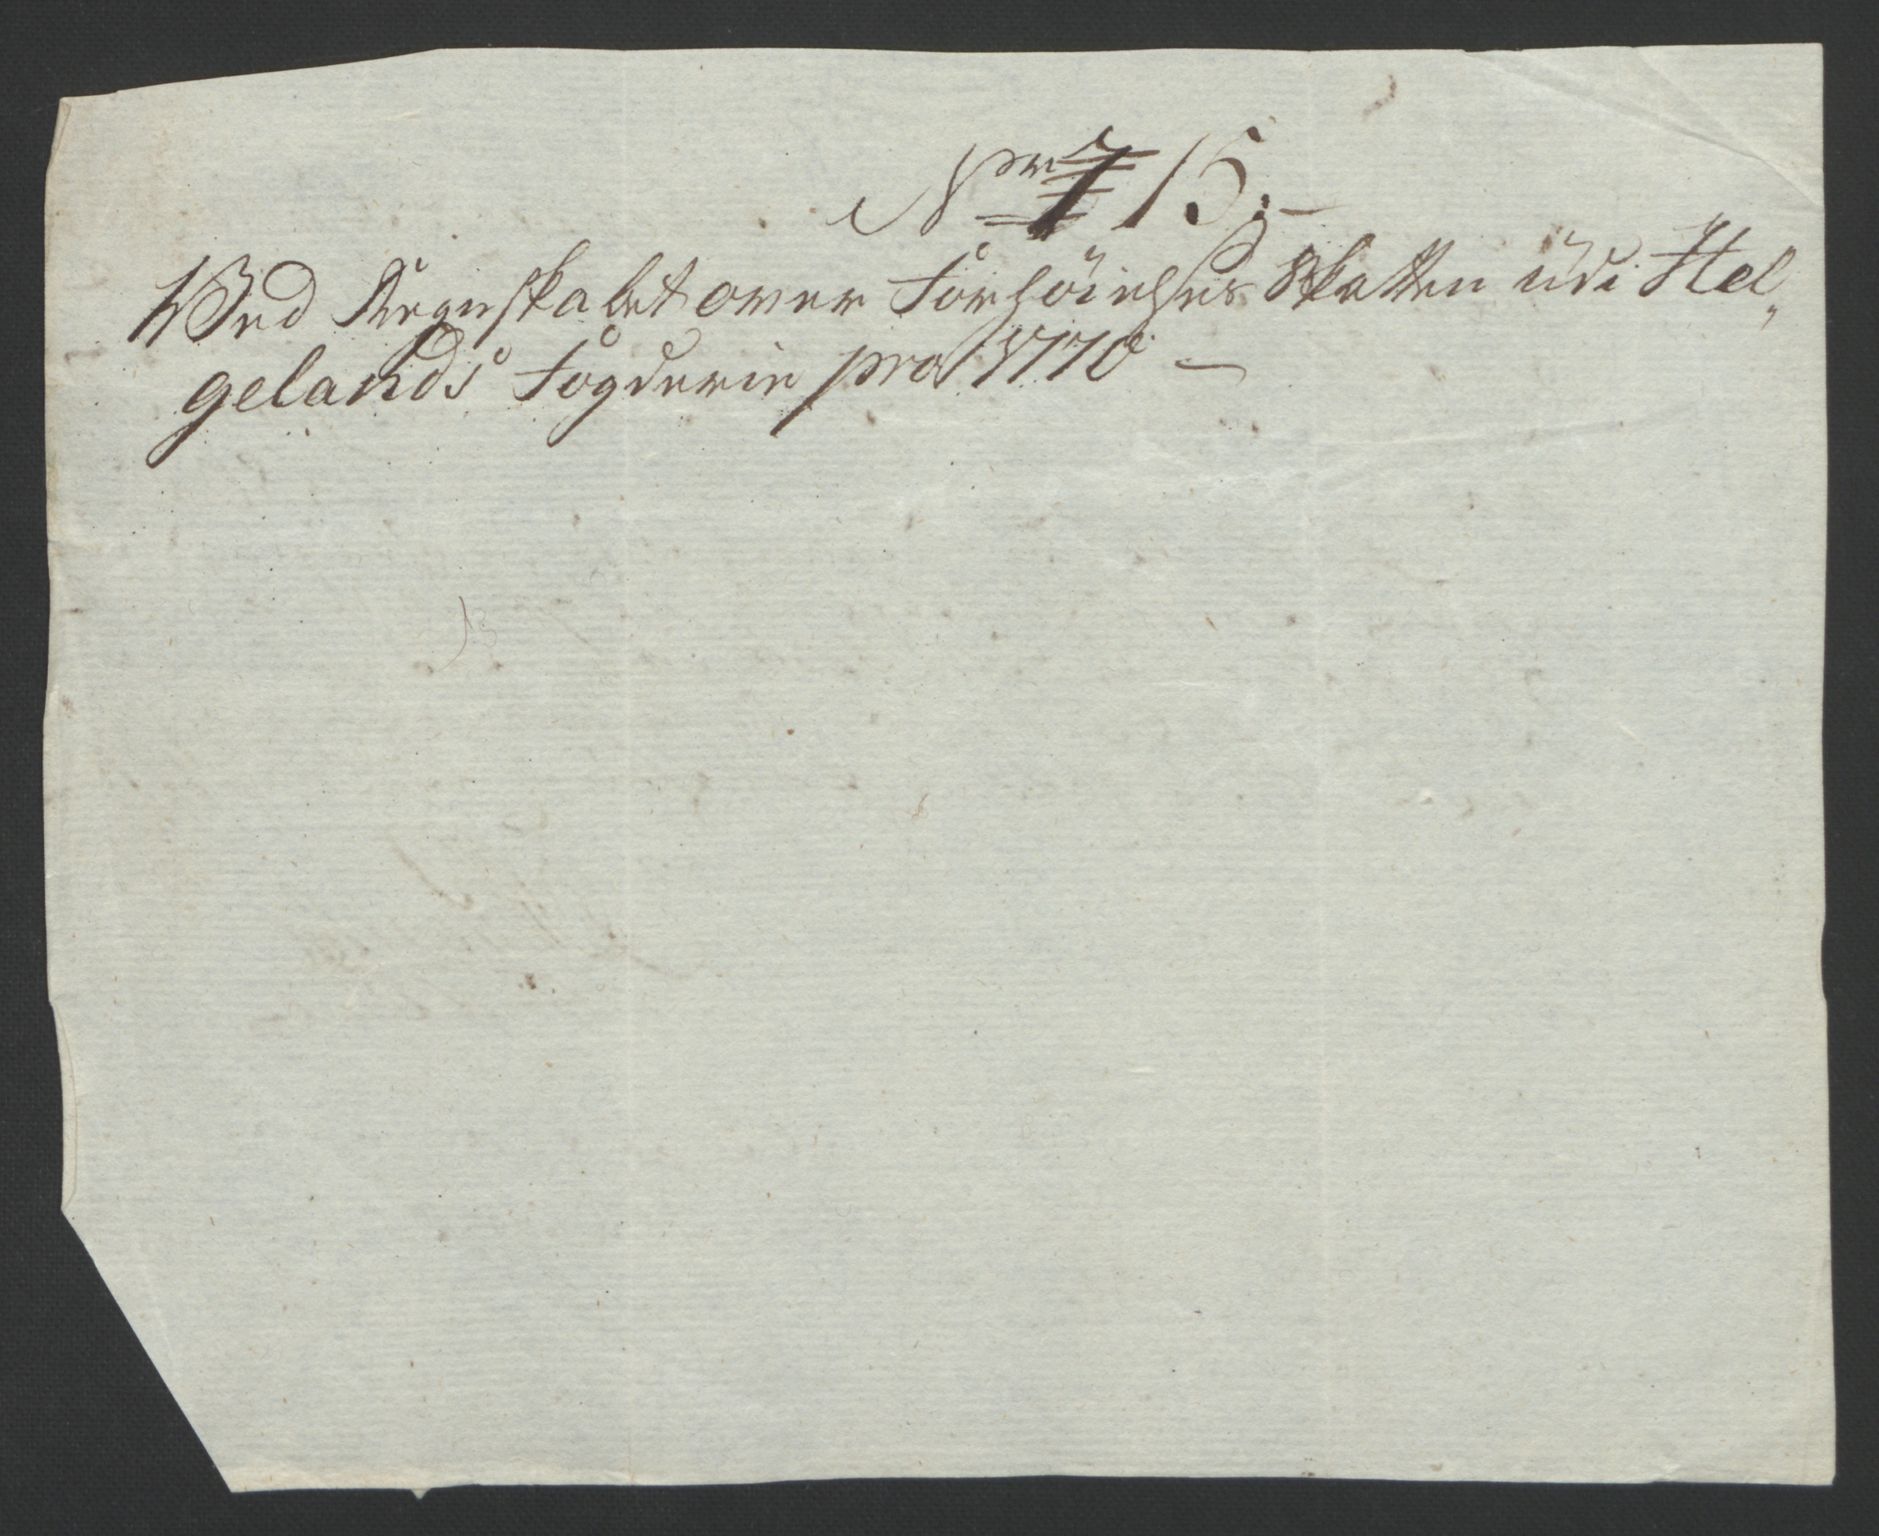 Nr. 15.
Wed Regnskabet over Forhøielses Skatten udi Hel„
gelands Fogderie pro 1770